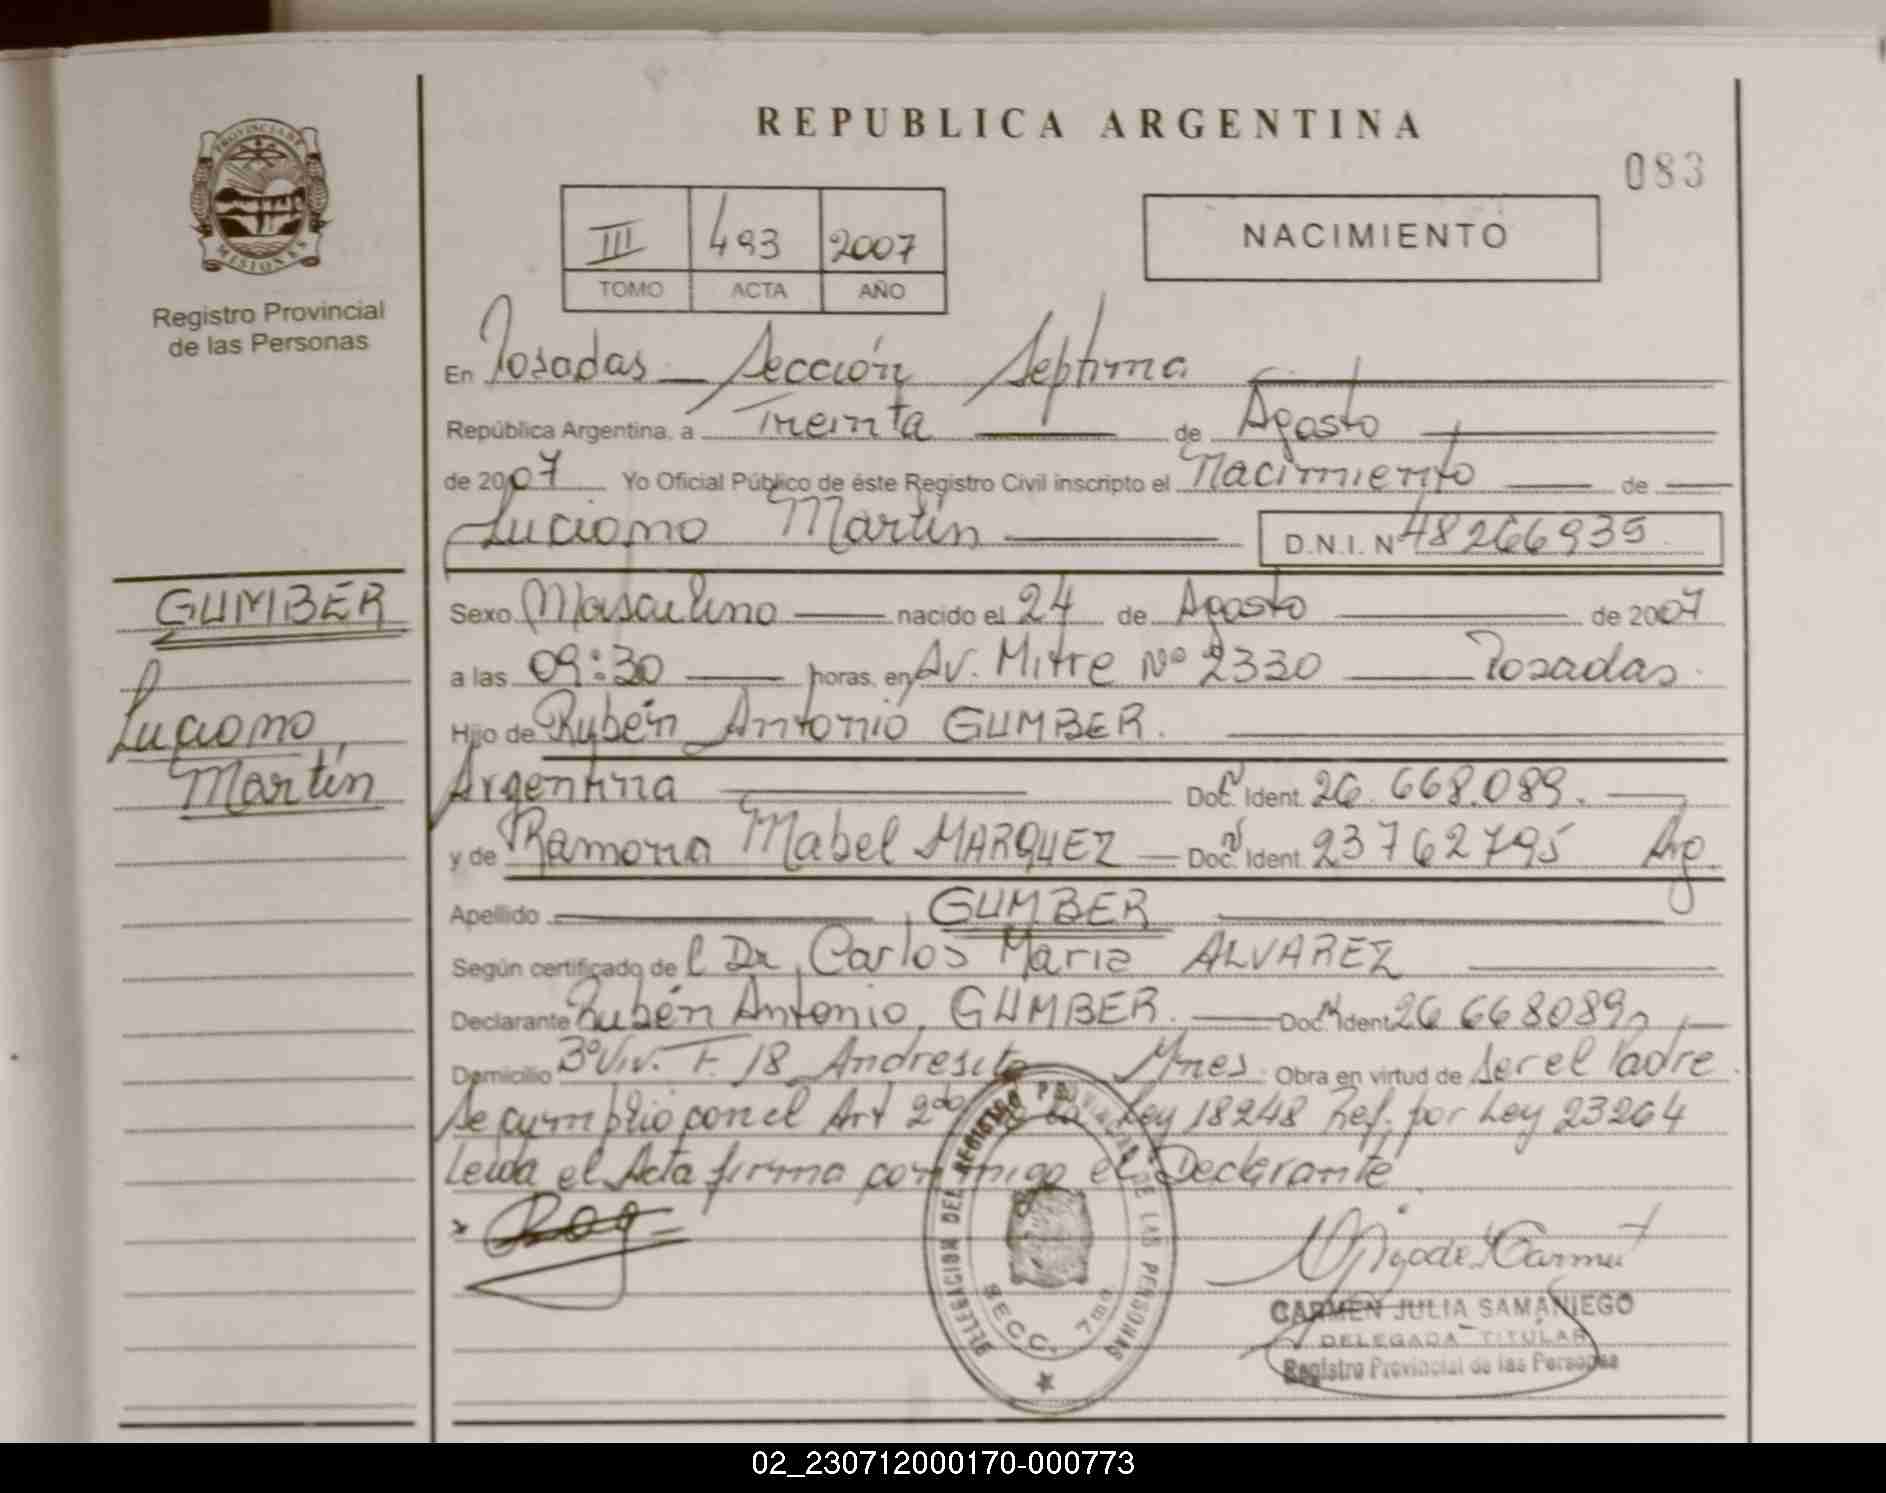 REPUBLICA ARGENTINA
083
PROVINCIA DE
MISIONES
Registro Provincial
de las Personas
III 493 2007
TOMO ACTA AÑO
NACIMIENTO
En Posadas Sección Septima
República Argentina, a Treinta de Agosto
de 2007 Yo Oficial Público de éste Registro Civil inscripto el Nacimiento de
Luciano Martín D.N.I. Nº 48266935
GUMBER
Luciano
Martín
Sexo Masculino nacido el 24 de Agosto de 2007
a las 09:30 horas, en Av. Mitre Nº 2330 Posadas.
Hijo de Rubén Antonio GUMBER.
Argentina Doc. Ident. 26.668.089.
y de Ramona Mabel MARQUEZ Doc. Ident. 23762795 Arg.
Apellido GUMBER
Según certificado del Dr. Carlos Maria ALVAREZ
Declarante Rubén Antonio GUMBER. Doc. Ident. 26668089
Domicilio 3º Viv. F. 18 Andresito Mnes. Obra en virtud de Ser el Padre.
Se cumplio con el Art 2do de la Ley 18248 Ref. por Ley 23264
Leida el Acta firma conmigo el Declarante
DELEGACION DEL REGISTRO PROVINCIAL DE LAS PERSONAS
SECC. 7ma
CARMEN JULIA SAMANIEGO
DELEGADA TITULAR
Registro Provincial de las Personas
02_230712000170-000773